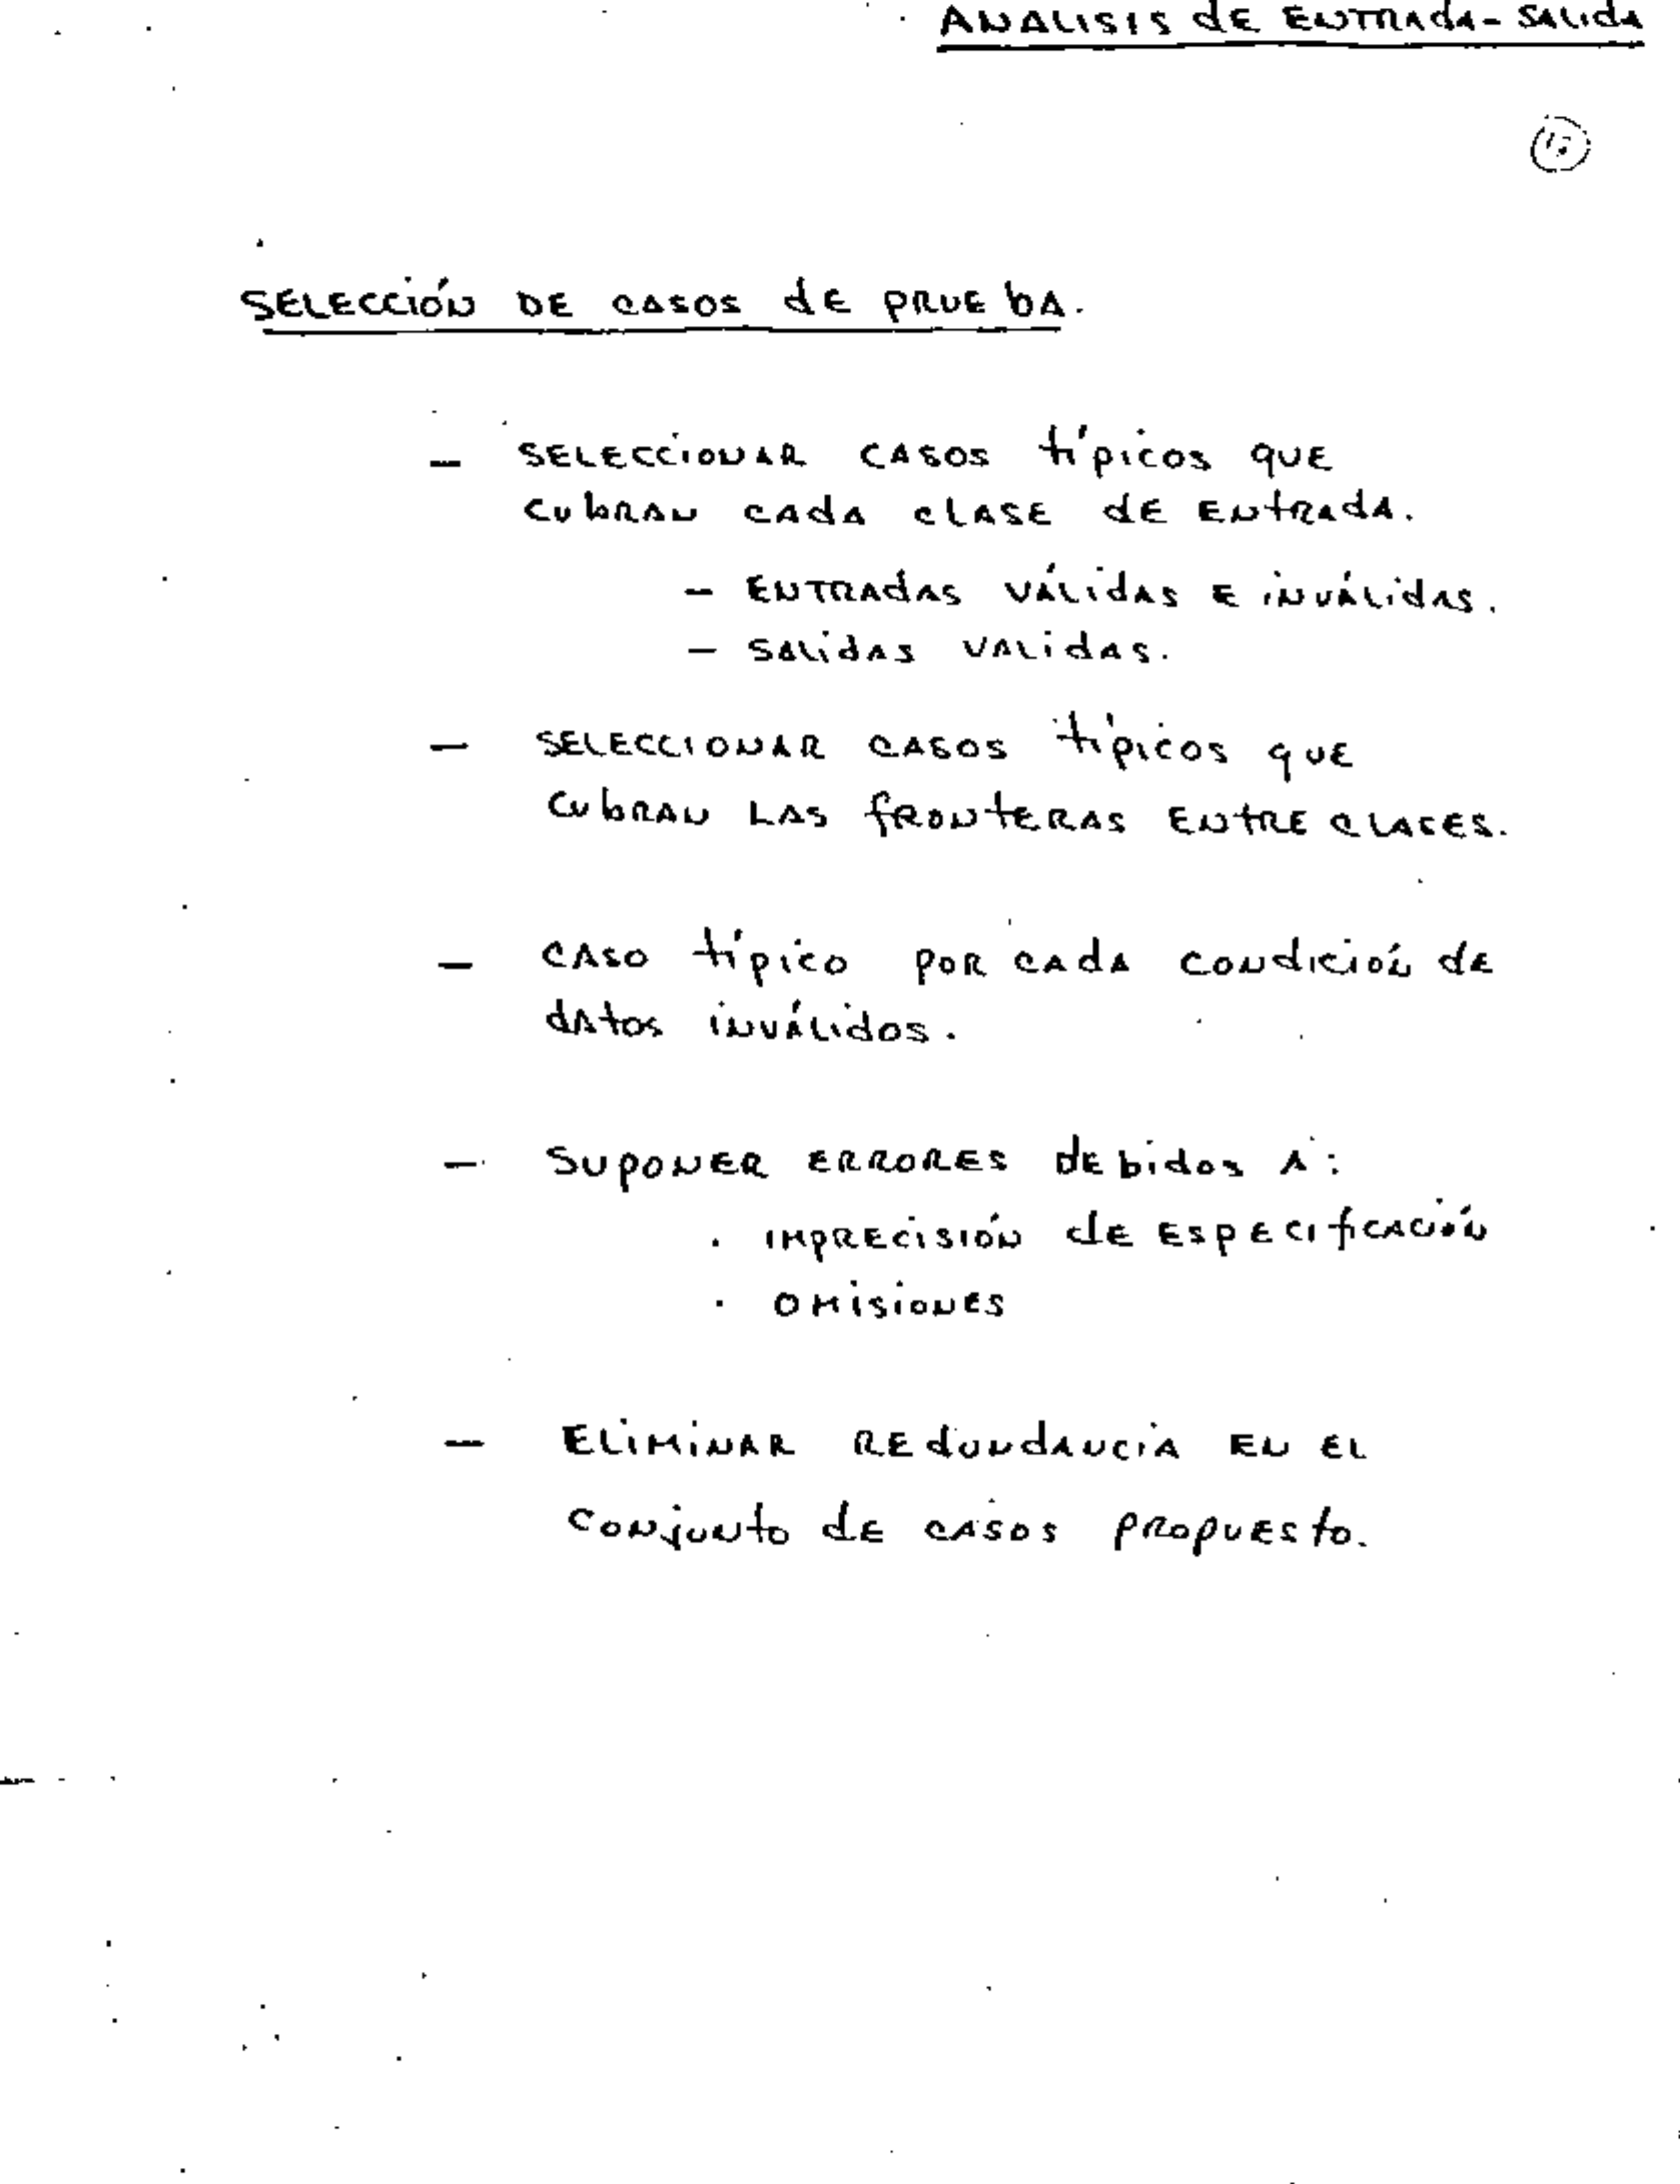 ANALISIS de ENTRADA-SALIDA
SELECCIÓN DE CASOS de PRUEBA.
- SELECCIONAR CASOS típicos que
CUBRAN CADA CLASE de ENTRADA.
- ENTRADAS VÁLIDAS E INVÁLIDAS.
- SALIDAS VALIDAS.
- SELECCIONAR CASOS típicos que
CUBRAN LAS fRONTERAS ENTRE CLASES.
- CASO típico POR CADA CONDICIÓN de
DATOS INVÁLIDOS.
- SUPONER ERRORES DEBIDOS A:
. IMPRECISIÓN de ESPECIFICACIÓN
. OMISIONES
- ELIMINAR REDUNDANCIA EN EL
CONJUNTO de CASOS PROPUESTO.